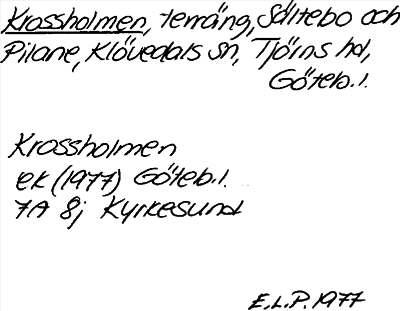 Krossholmen, terräng, Sältebo och
Pilane, Klövedals sn, Tjörns hd,
Göteb.l.
Krossholmen
ek (1977) Göteb.l.
7A 8j Kyrkesund
E.L.P. 1977